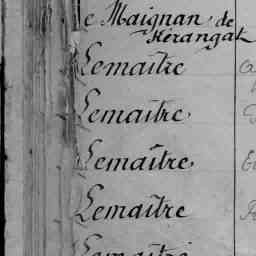 e Maignan de
Kérangat
Lemaître
Lemaître
Lemaître
Lemaître
Lemaitre